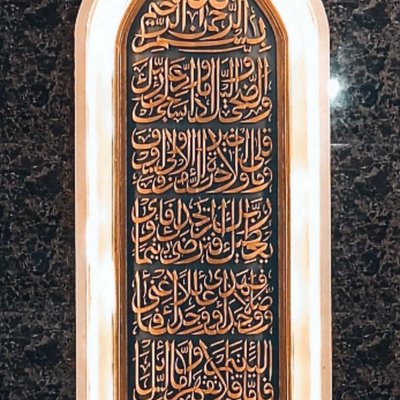 بسم الله الرحمن الرحيم
والضحى والليل إذا سجى ما ودعك ربك
وما قلى وللآخرة خير لك من الأولى ولسوف
يعطيك ربك فترضى ألم يجدك يتيما فآوى
ووجدك ضالا فهدى ووجدك عائلا فأغنى فأما
اليتيم فلا تقهر وأما السائل